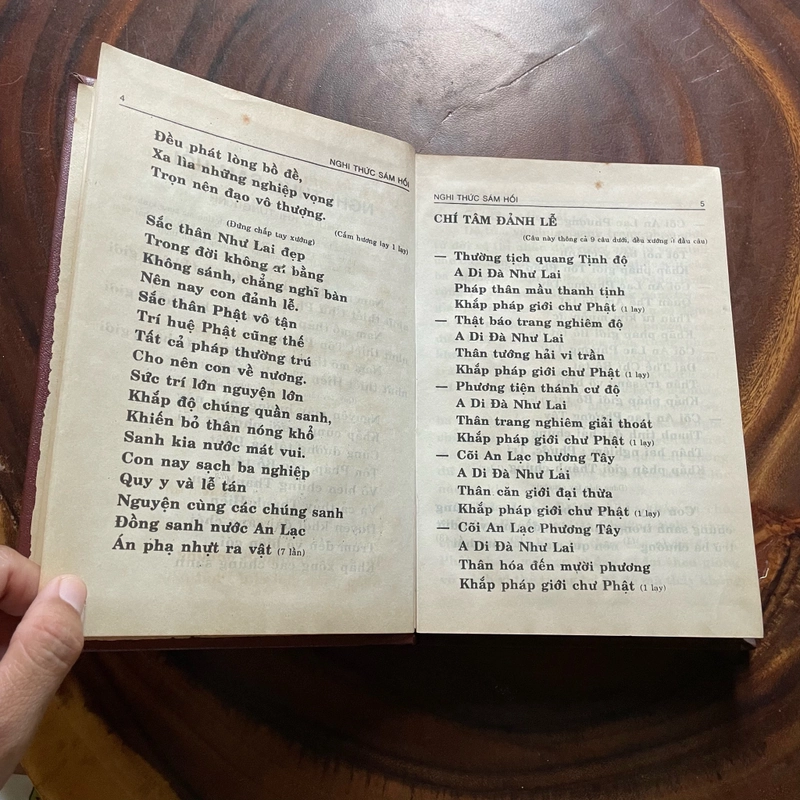 4
NGHI THỨC SÁM HỐI
Đều phát lòng bồ đề,
Xa lìa những nghiệp vọng
Trọn nên đạo vô thượng.
(Cắm hương lạy 1 lạy)
(Đứng chấp tay xướng)
Sắc thân Như Lai đẹp
Trong đời không ai bằng
Không sánh, chẳng nghĩ bàn
Nên nay con đảnh lễ.
Sắc thân Phật vô tận
Trí huệ Phật cũng thế
Tất cả pháp thường trú
Cho nên con về nương.
Sức trí lớn nguyện lớn
Khắp độ chúng quần sanh,
Khiến bỏ thân nóng khổ
Sanh kia nước mát vui.
Con nay sạch ba nghiệp
Quy y và lễ tán
Nguyện cùng các chúng sanh
Đồng sanh nước An Lạc
Án phạ nhựt ra vật (7 lần)
NGHI THỨC SÁM HỐI
5
CHÍ TÂM ĐẢNH LỄ
(Câu này thông cả 9 câu dưới, đều xướng ở đầu câu)
— Thường tịch quang Tịnh độ
A Di Đà Như Lai
Pháp thân mầu thanh tịnh
Khắp pháp giới chư Phật (1 lạy)
— Thật báo trang nghiêm độ
A Di Đà Như Lai
Thân tướng hải vi trần
Khắp pháp giới chư Phật (1 lạy)
— Phương tiện thánh cư độ
A Di Đà Như Lai
Thân trang nghiêm giải thoát
Khắp pháp giới chư Phật (1 lạy)
— Cõi An Lạc phương Tây
A Di Đà Như Lai
Thân căn giới đại thừa
Khắp pháp giới chư Phật (1 lạy)
— Cõi An Lạc Phương Tây
A Di Đà Như Lai
Thân hóa đến mười phương
Khắp pháp giới chư Phật (1 lạy)